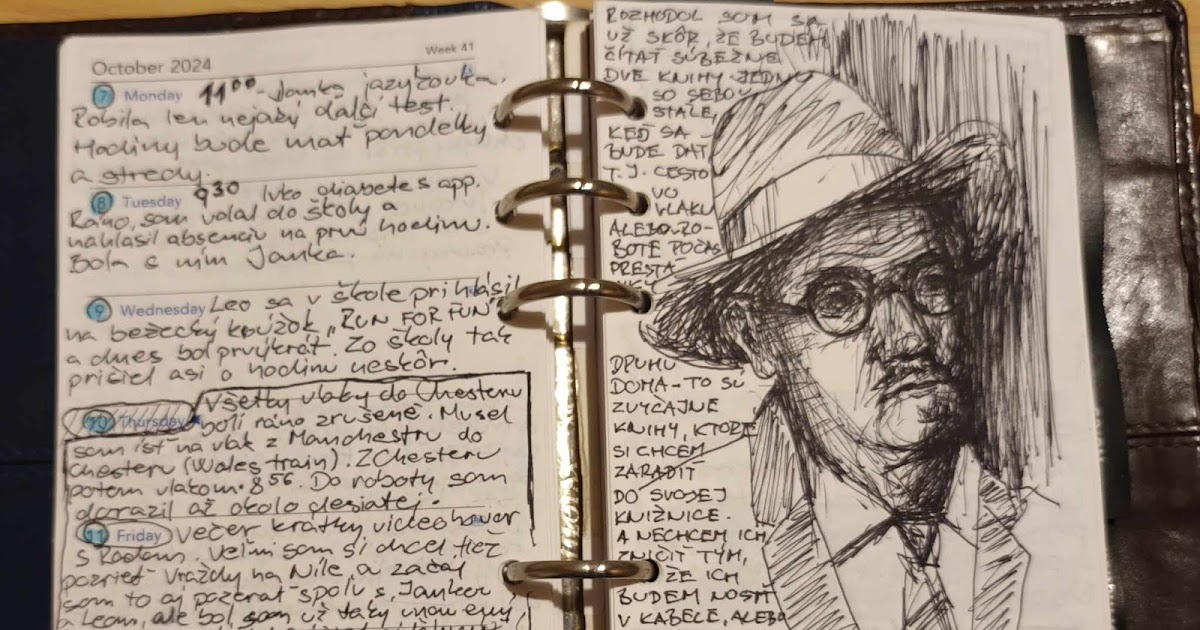 October 2024
Week 41
7 Monday 11⁰⁰ - Janka jazykovka.
Robila len nejaký ďalší test.
Hodiny bude mať pondelky
a stredy.
8 Tuesday 9³⁰ Ivko diabetes app.
Ráno, som volal do školy a
nahlásil absenciu na prvú hodinu.
Bola s ním Janka.
9 Wednesday Leo sa v škole prihlásil
na bežecký krúžok „RUN FOR FUN"
a dnes bol prvýkrát. Zo školy tak
prišiel asi o hodinu neskôr.
10 Thursday Všetky vlaky do Chesteru
boli ráno zrušené. Musel
som ísť na vlak z Manchestru do
Chesteru (Wales train). Z Chesteru
potom vlakom 8⁵⁶. Do roboty som
dorazil až okolo desiatej.
11 Friday Večer krátky videohovor
s Veľmi som si chcel tiež
pozrieť Vraždy na Níle, a začal
som to aj pozerať spolu s Jankou
a Leom, ale bol som už taký unavený,
ROZHODOL SOM SA
UŽ SKÔR, ŽE BUDEM
ČÍTAŤ SÚBEŽNE
DVE KNIHY. JEDNU
SO SEBOU
STÁLE,
KEĎ SA
BUDE DAŤ
T.J. CESTOU
VO
VLAKU
ALEBO V RO-
BOTE POČAS
PRESTÁ-
VKY
DRUHÚ
DOMA - TO SÚ
ZVYČAJNE
KNIHY, KTORÉ
SI CHCEM
ZARADIŤ
DO SVOJEJ
KNIŽNICE.
A NECHCEM ICH
ZNIČIŤ TÝM,
ŽE ICH
BUDEM NOSIŤ
V KABELE, ALEBO